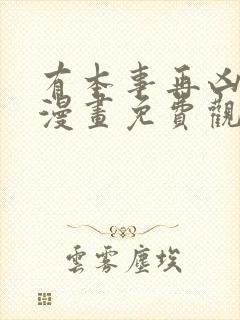 有本事再凶
漫畫免費觀
雲霧塵埃